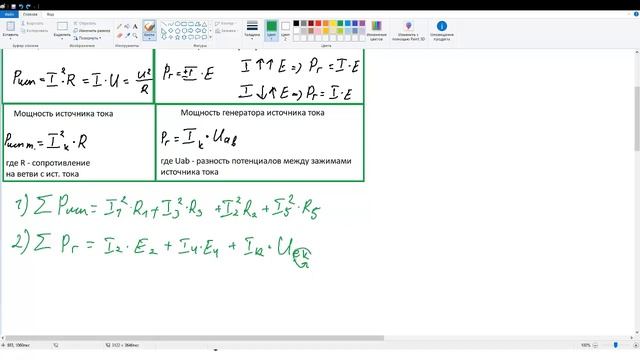 Файл
Главная
Вид
Вставить
Вырезать
Копировать
Выделить
Обрезать
Изменить размер
Повернуть
Кисти
Контур
Заливка
Толщина
Цвет 1
Цвет 2
Изменение цветов
Изменить с помощью Paint 3D
Оповещение продукта
Буфер обмена
Изображение
Инструменты
Фигуры
Цвета
Pист = I²·R = I·U = U²/R
Pг = ±I·E
I ↑↑ E => Pг = I·E
I ↓↑ E => Pг = I·E
Мощность источника тока
Pист т. = Iк²·R
где R - сопротивление
на ветви с ист. тока
Мощность генератора источника тока
Pг = Iк·Uab
где Uab - разность потенциалов между зажимами
источника тока
1) ∑ Pист = I1²·R1 + I3²·R3 + I2²R2 + I5²·R5
2) ∑ Pг = I2·E2 + I4·E4 + Iк·Uек
100%